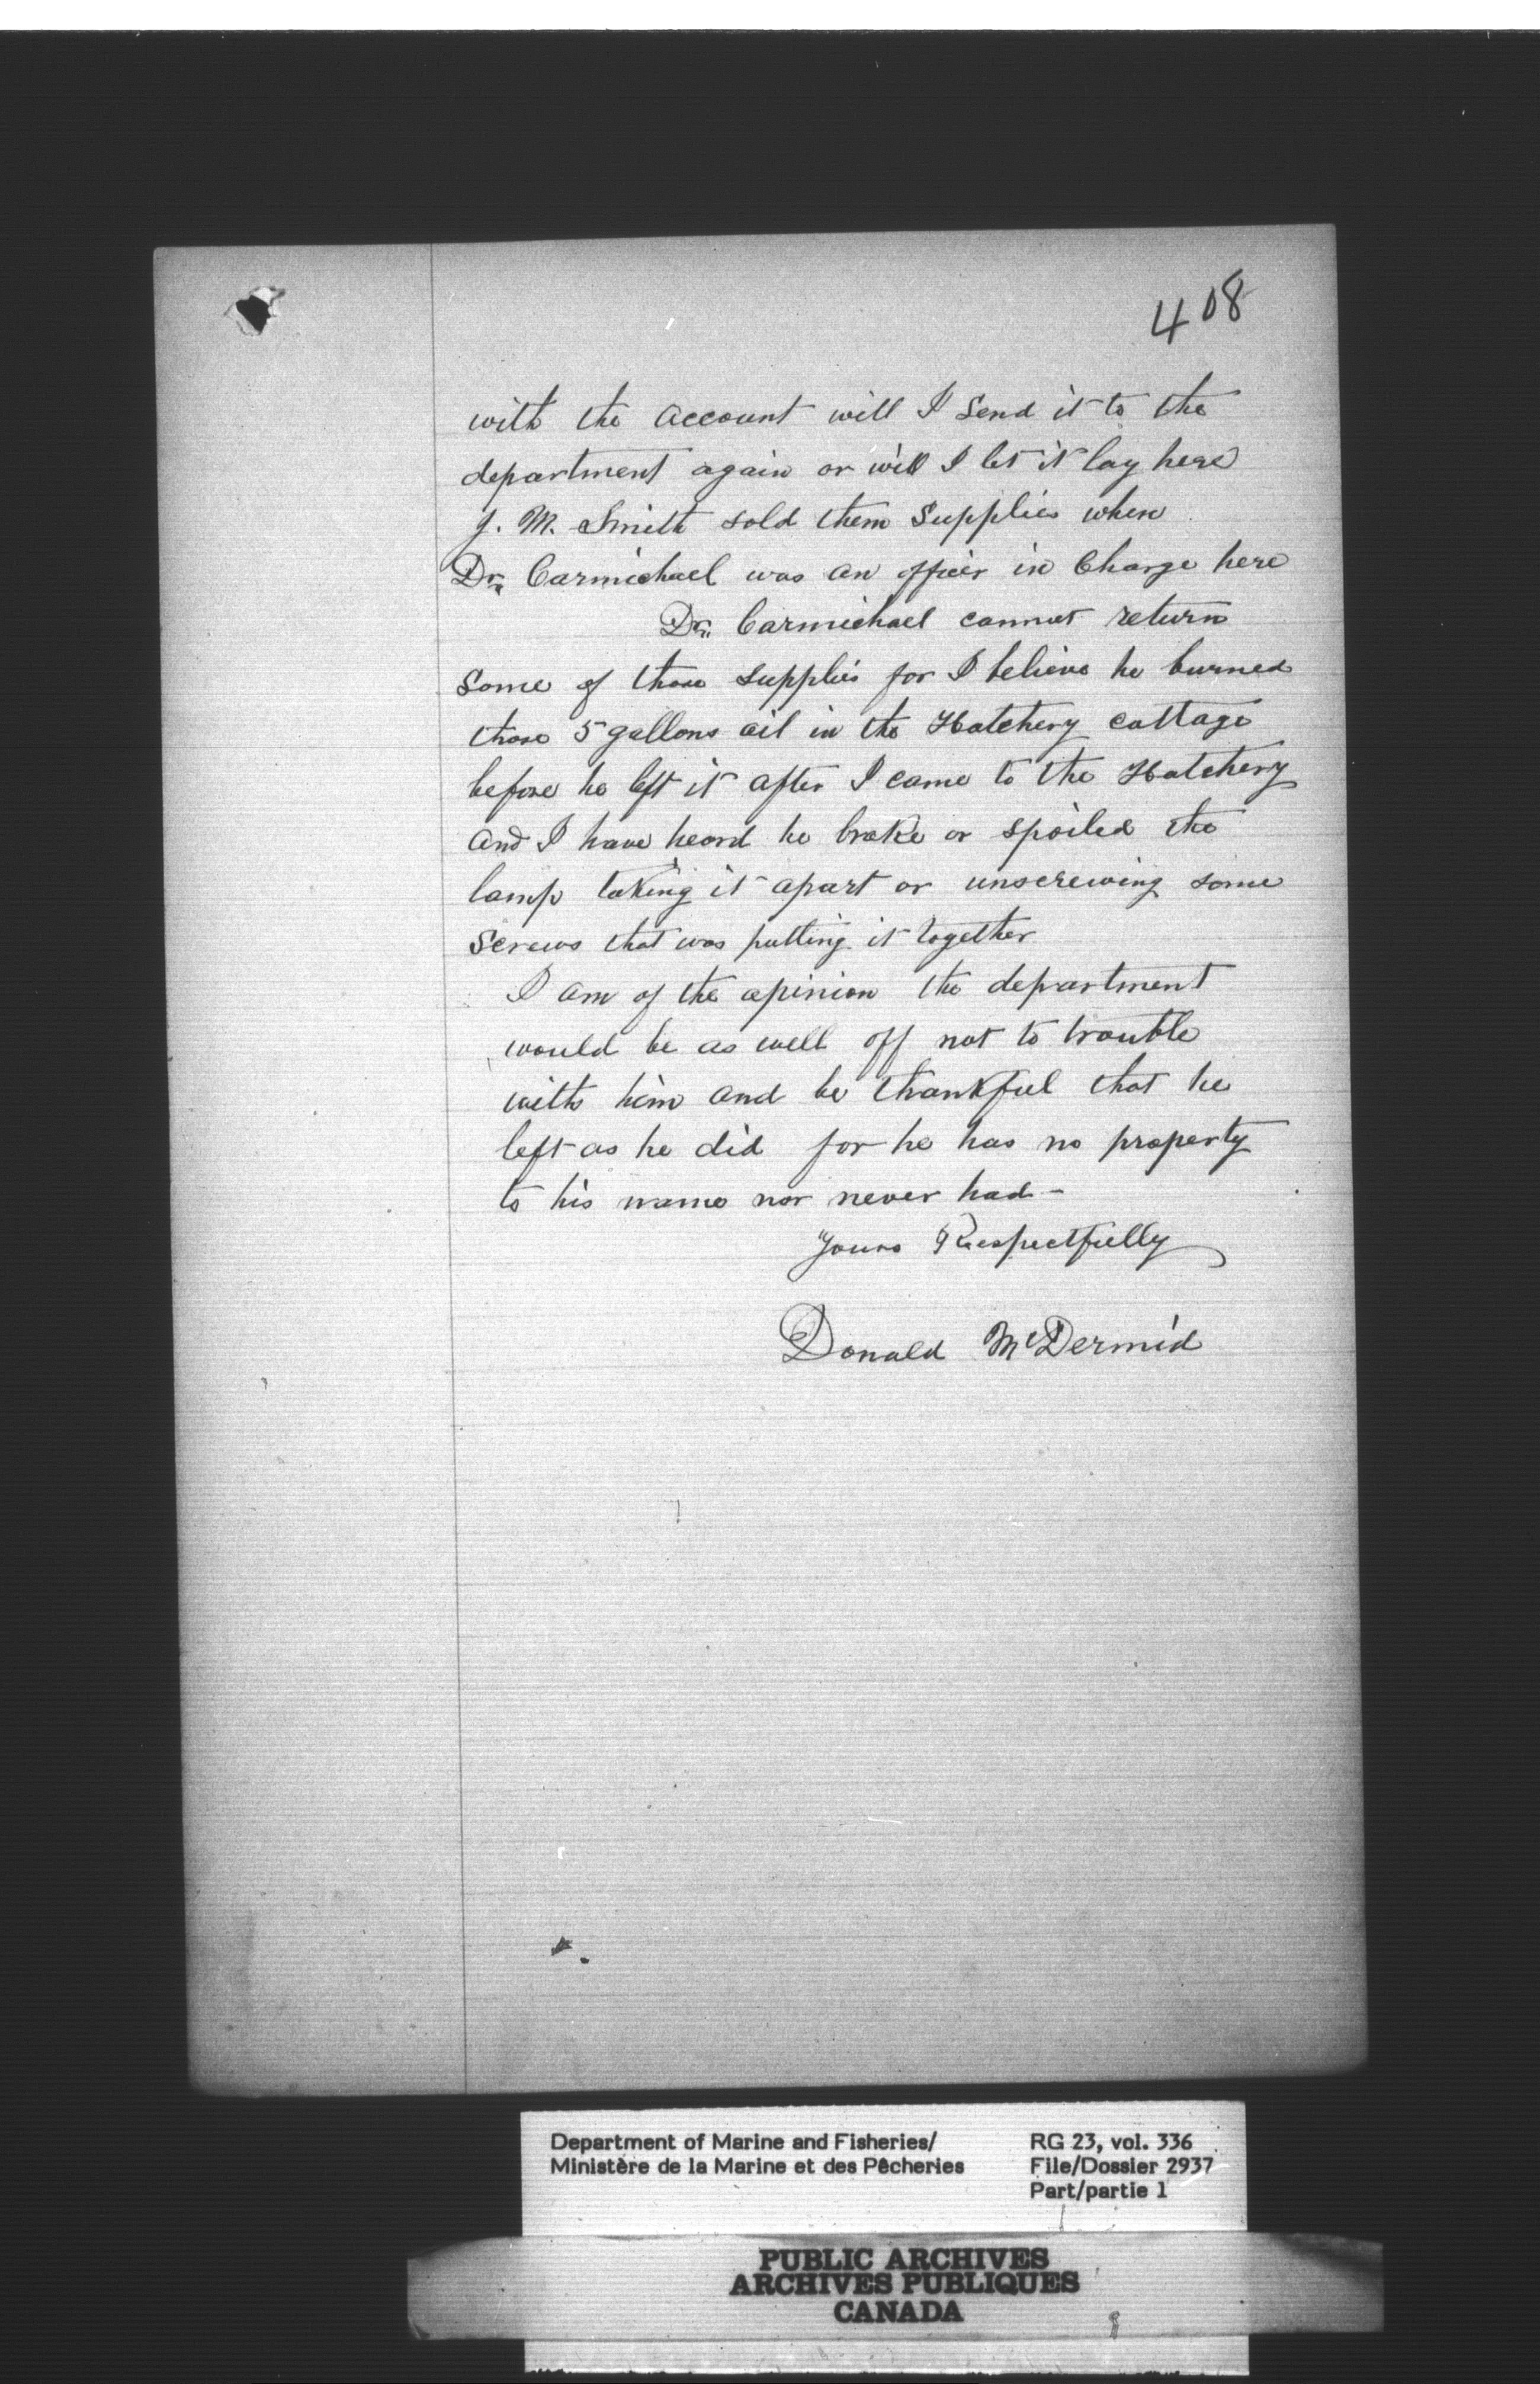 408
with the account will I send it to the
department again or will I let it lay here
J. M. Smith sold them supplies when
Dr. Carmichael was an officer in Charge here
Dr. Carmichael cannot return
some of those supplies for I believe he burned
those 5 gallons oil in the Hatchery cottage
before he left it after I came to the Hatchery
and I have heard he broke or spoiled the
lamp taking it apart or unscrewing some
screws that was putting it together
I am of the opinion the department
would be as well off not to trouble
with him and be thankful that he
left as he did for he has no property
to his name nor never had -
Yours Respectfully
Donald McDermid
Department of Marine and Fisheries/ RG 23, vol. 336
Ministère de la Marine et des Pêcheries File/Dossier 2937
Part/partie 1
PUBLIC ARCHIVES
ARCHIVES PUBLIQUES
CANADA